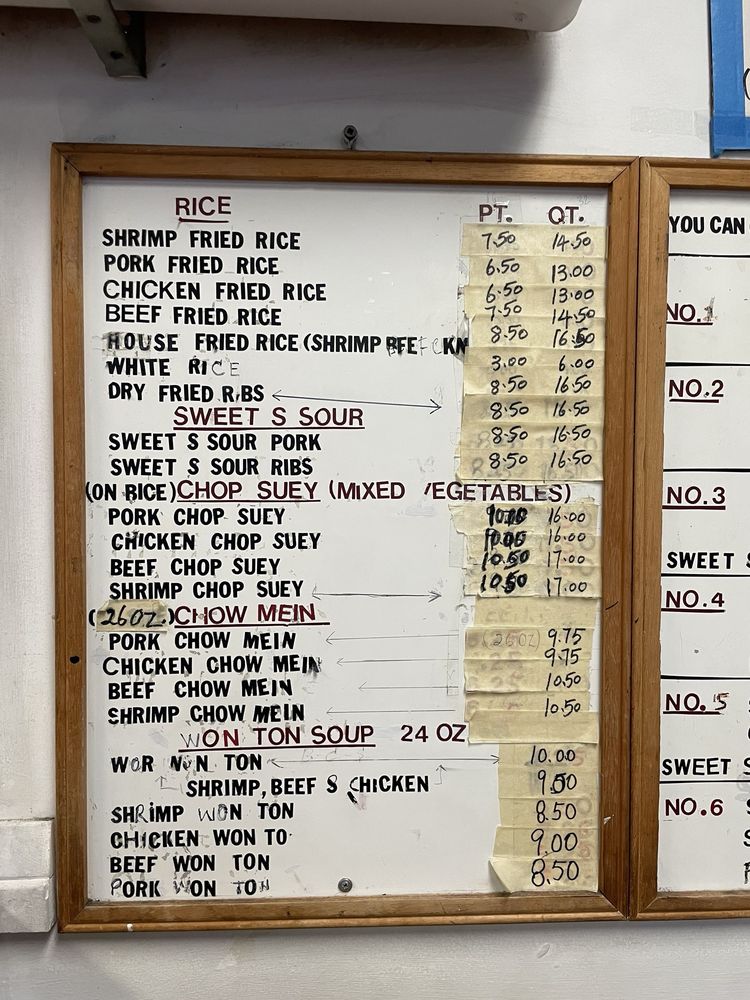 RICE PT. QT.
SHRIMP FRIED RICE 7.50 14.50
PORK FRIED RICE 6.50 13.00
CHICKEN FRIED RICE 6.50 13.00
BEEF FRIED RICE 7.50 14.50
HOUSE FRIED RICE (SHRIMP BEEF CKN 8.50 16.50
WHITE RICE 3.00 6.00
DRY FRIED RIBS 8.50 16.50
8.50 16.50
SWEET S SOUR
SWEET S SOUR PORK 8.50 16.50
SWEET S SOUR RIBS 8.50 16.50
(ON RICE) CHOP SUEY (MIXED VEGETABLES)
PORK CHOP SUEY 16.00
CHICKEN CHOP SUEY 16.00
BEEF CHOP SUEY 10.50 17.00
SHRIMP CHOP SUEY 10.50 17.00
(26 OZ.) CHOW MEIN
PORK CHOW MEIN (26 OZ) 9.75
CHICKEN CHOW MEIN 9.75
BEEF CHOW MEIN 10.50
SHRIMP CHOW MEIN 10.50
WON TON SOUP 24 OZ
WOR WON TON 10.00
SHRIMP, BEEF S CHICKEN 9.50
SHRIMP WON TON 8.50
CHICKEN WON TO 9.00
BEEF WON TON 8.50
PORK WON TON
YOU CAN
NO.1
NO.2
NO.3
SWEET S
NO.4
NO.5
SWEET S
NO.6